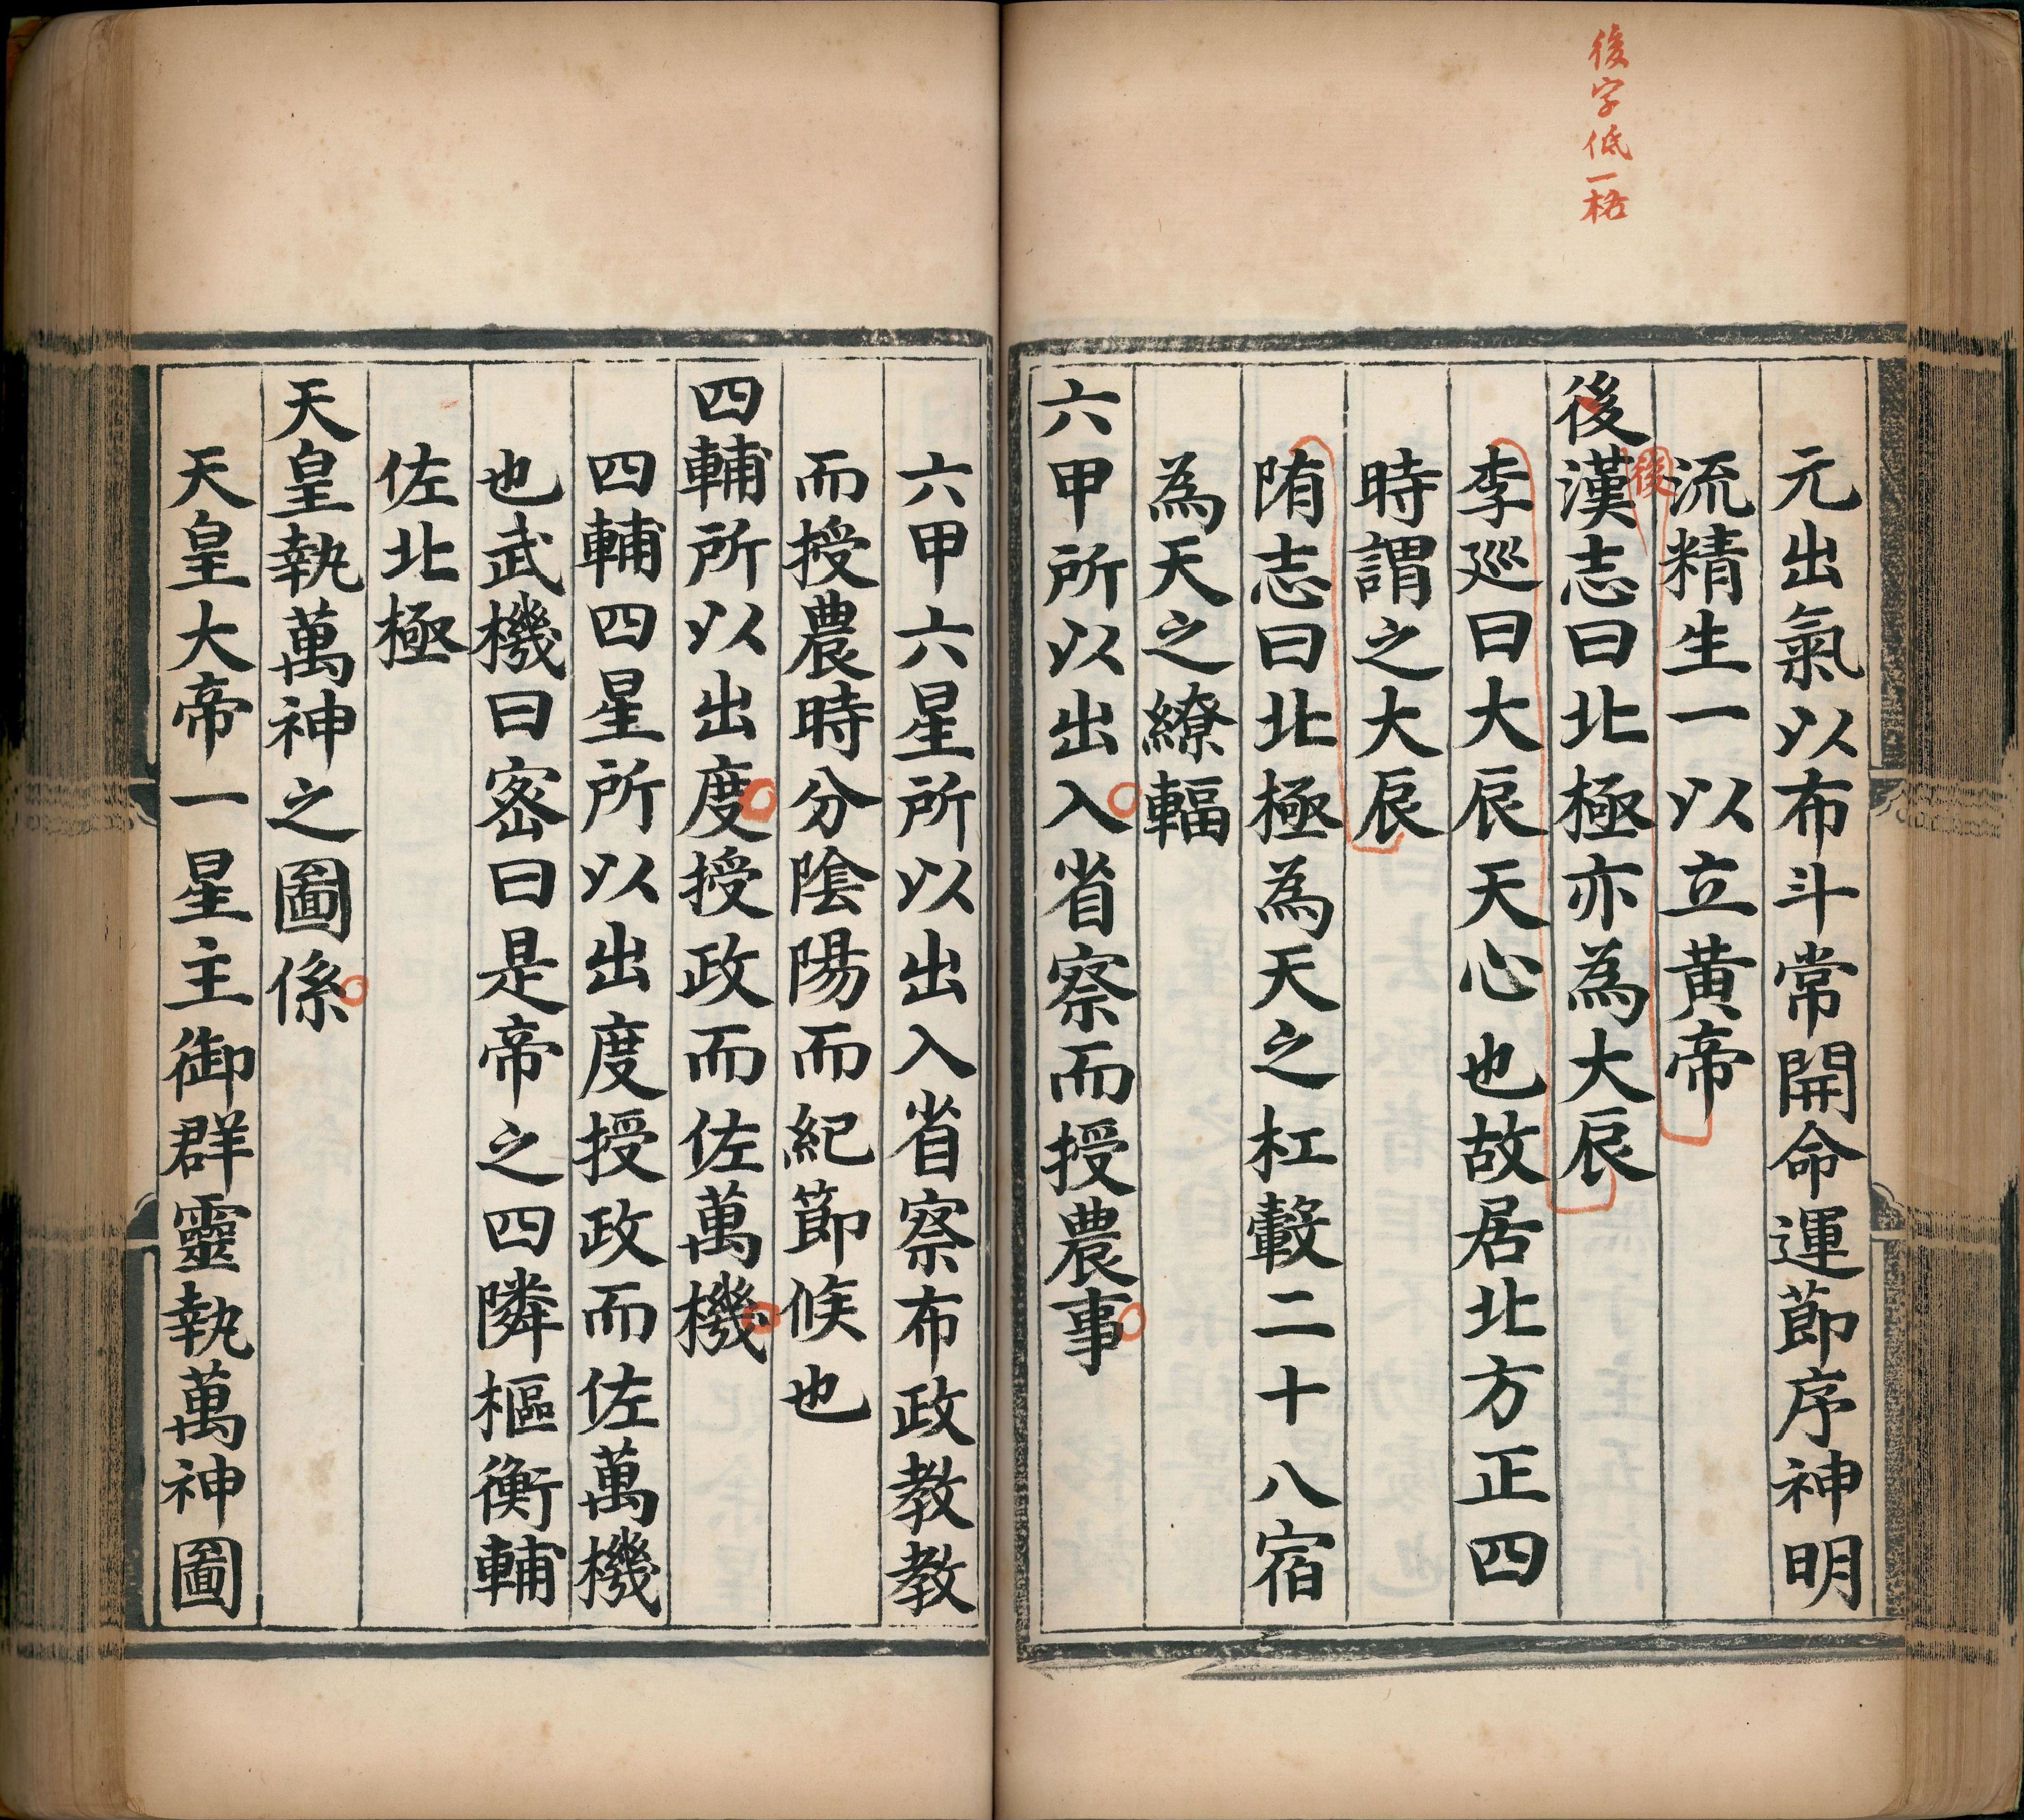 後字低一格
元出氣以布斗常開命運節序神明
流精生一以立黄帝
後
後漢志曰北極亦為大辰
李巡曰大辰天心也故居北方正四
時謂之大辰
隋志曰北極為天之杠轂二十八宿
為天之繚輻
六甲所以出入省察而授農事
六甲六星所以出入省察布政教教
而授農時分陰陽而紀節候也
四輔所以出度授政而佐萬機
四輔四星所以出度授政而佐萬機
也武機曰宻曰是帝之四隣樞衡輔
佐北極
天皇執萬神之圖係
天皇大帝一星主御群靈執萬神圖